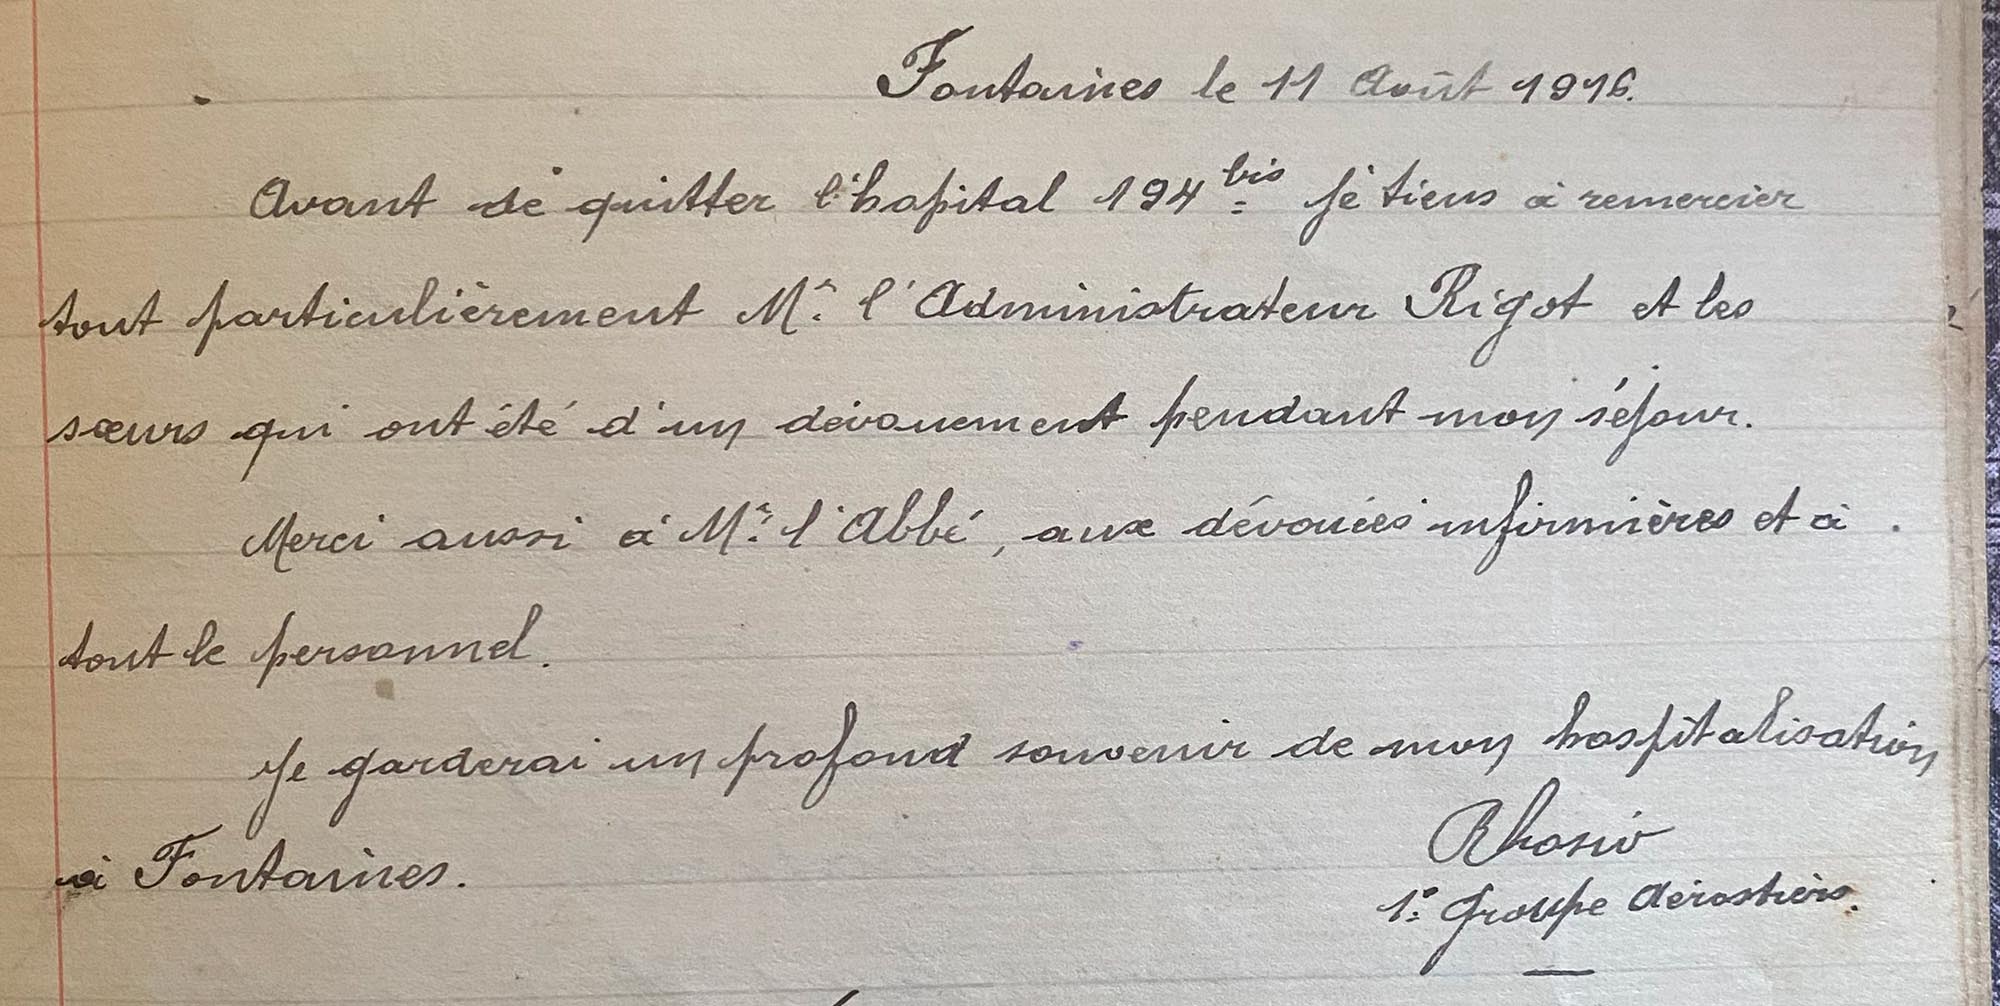 Fontaines le 11 Août 1916.
Avant de quitter l'hopital 194 bis je tiens à remercier
tout particulièrement Mr. l'Administrateur Rigot et les
sœurs qui ont été d'un dévouement pendant mon séjour.
Merci aussi à Mr. l'Abbé, aux dévouées infirmières et à
tout le personnel.
Je garderai un profond souvenir de mon hospitalisation
à Fontaines.
1e Groupe Aérostiers.